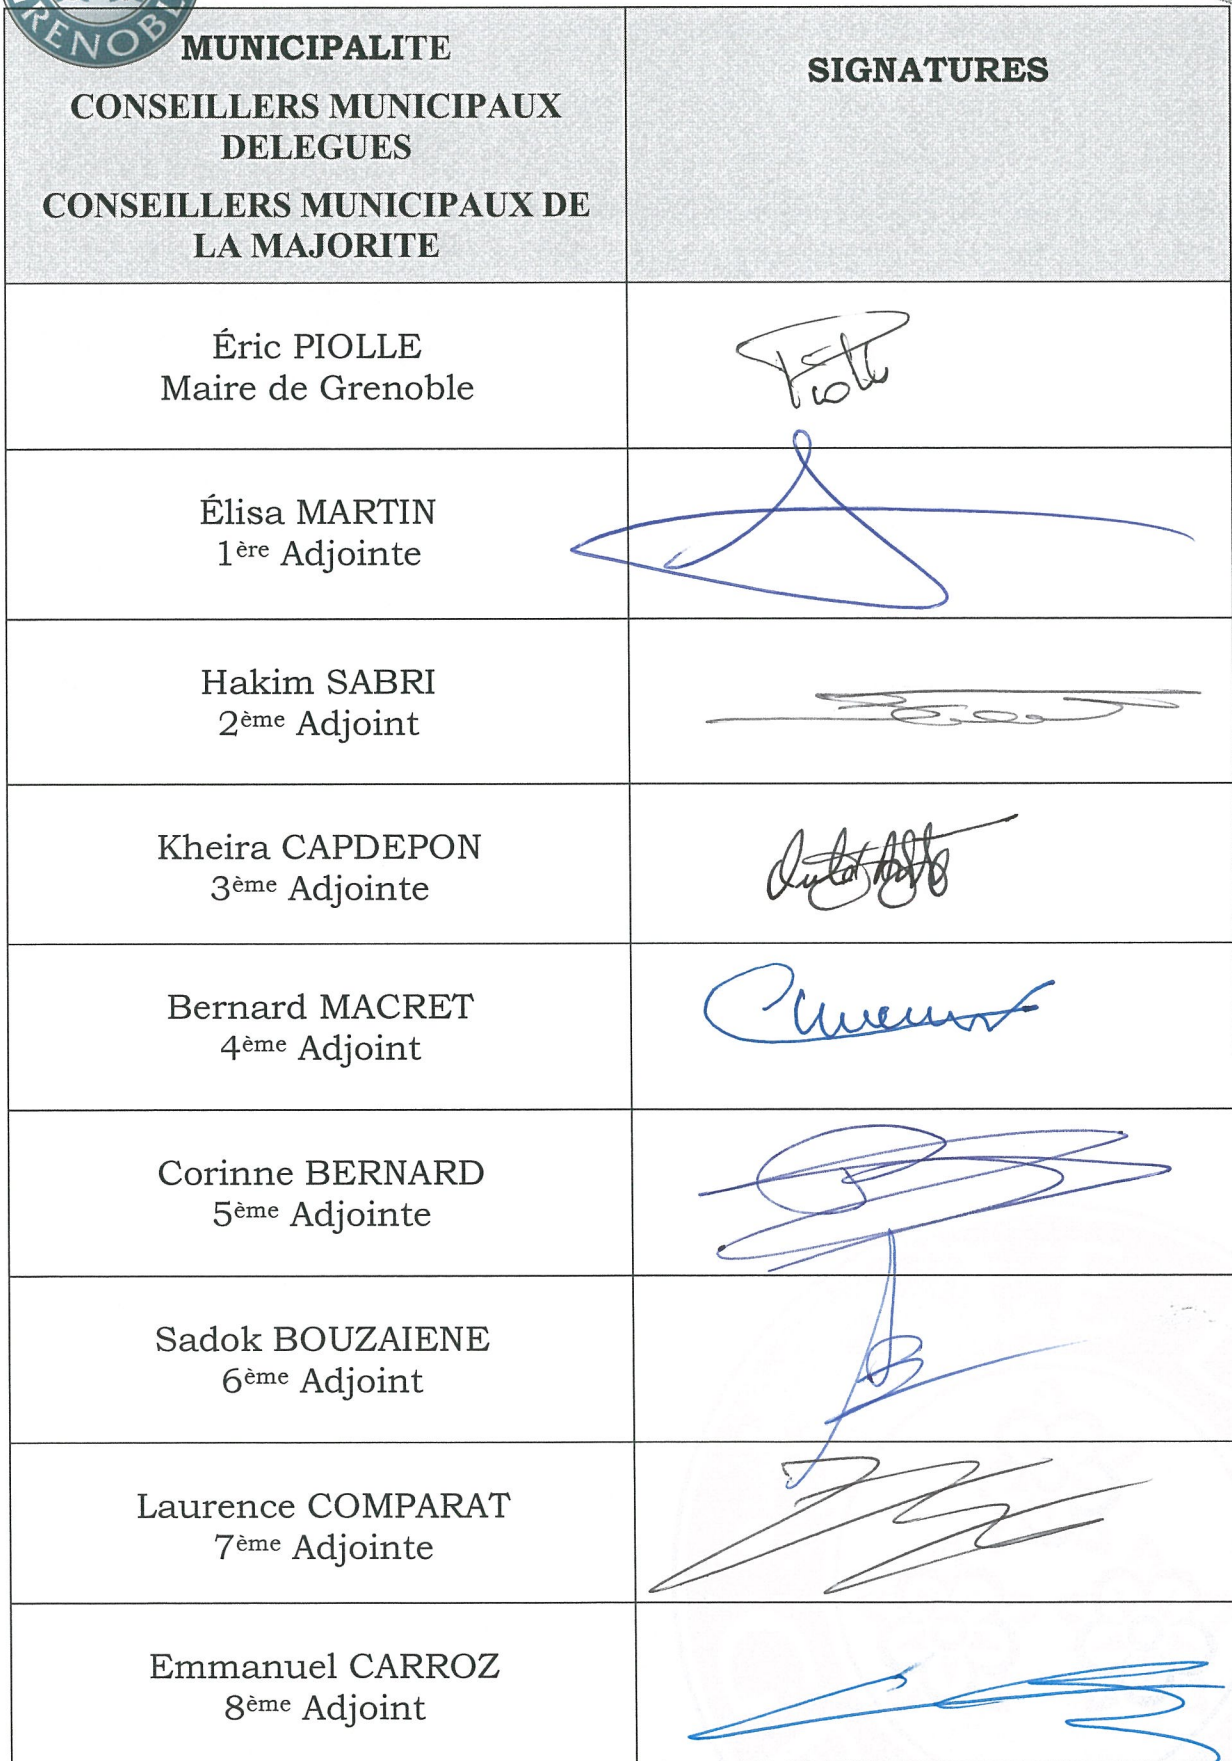 GRENOBLE
MUNICIPALITE
CONSEILLERS MUNICIPAUX
DELEGUES
CONSEILLERS MUNICIPAUX DE
LA MAJORITE
SIGNATURES
Éric PIOLLE
Maire de Grenoble
Piolle
Élisa MARTIN
1ère Adjointe
Hakim SABRI
2ème Adjoint
Kheira CAPDEPON
3ème Adjointe
Bernard MACRET
4ème Adjoint
Corinne BERNARD
5ème Adjointe
Sadok BOUZAIENE
6ème Adjoint
Laurence COMPARAT
7ème Adjointe
Emmanuel CARROZ
8ème Adjoint